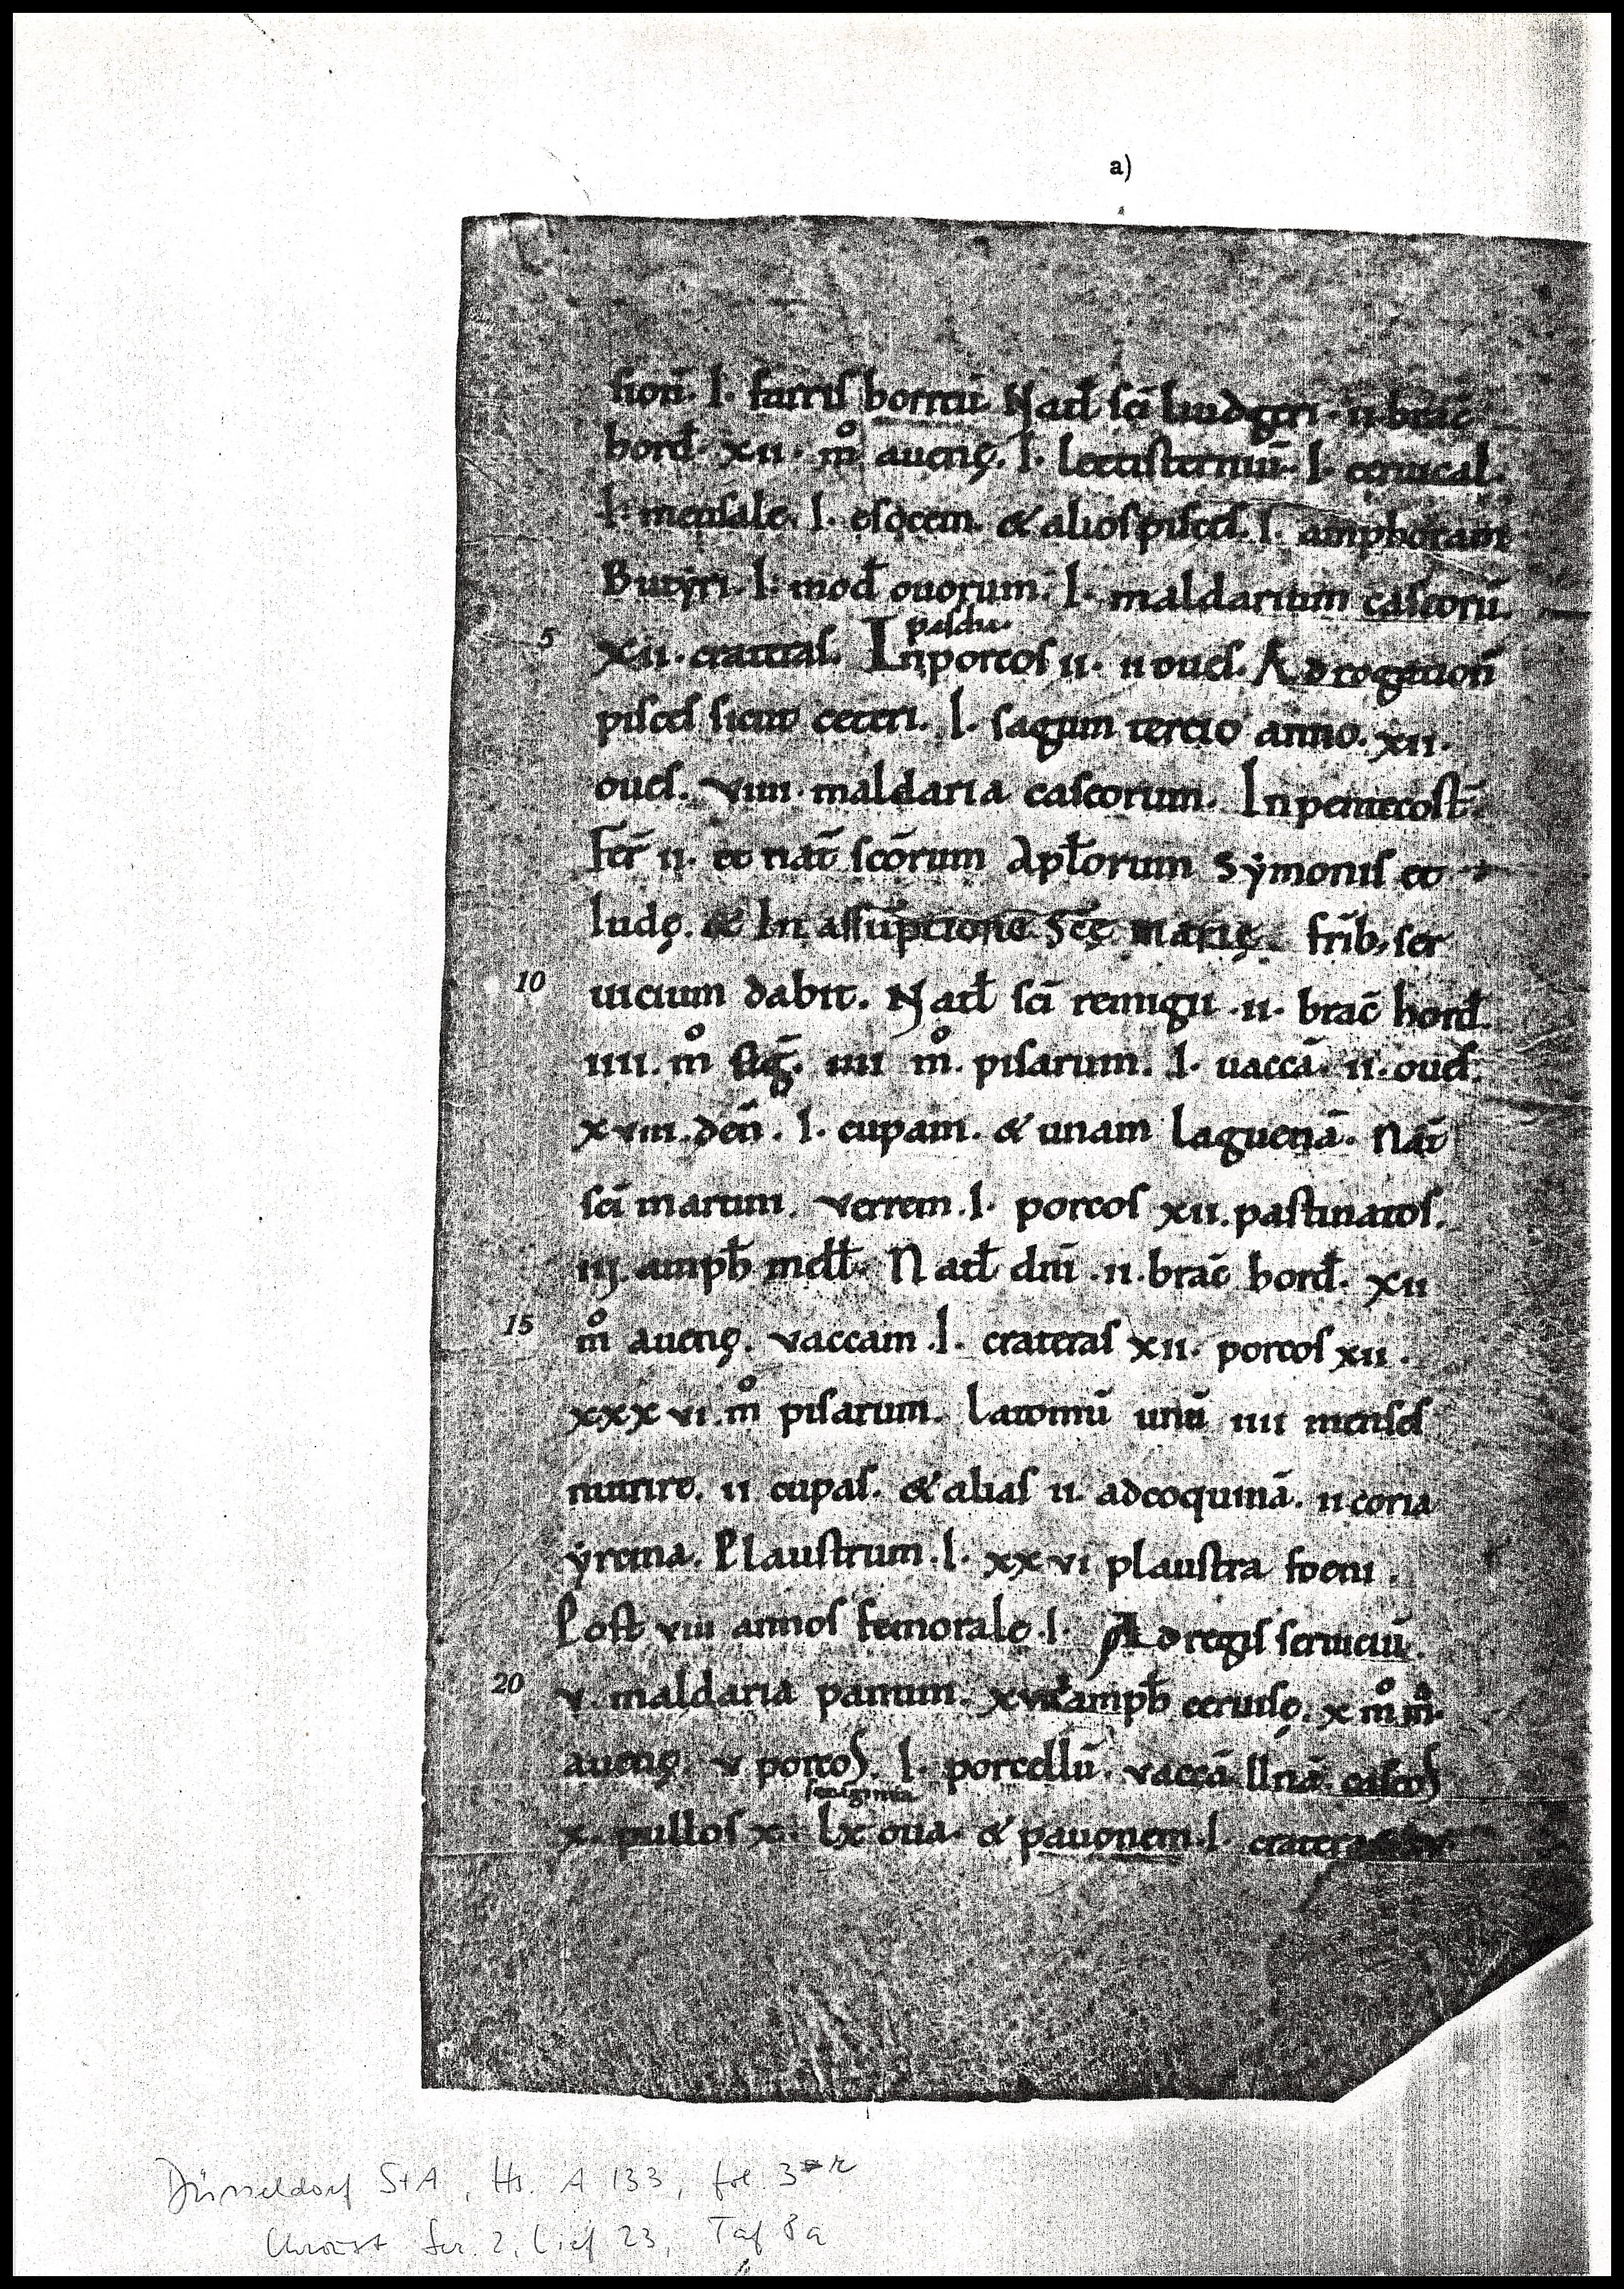 a)
sioñ. I. farris horreũ. Natł sc̄i liudgeri. ii. brac̄
hord̄. xii. m̊ auenę. I. lectisterniũ. I. ceruical.
I. mensale. I. esocem. & alios pisces. I. amphoram
Butẏri. I. mod̄ ouorum. I. maldarium caseorũ.
5 xii. crateras. In pascha. porcos ii. ii oues. Ad rogation̄
pisces sicut ceteri. I. sagum tercio anno. xii.
oues. viiii. maldaria caseorum. In pentecost̄.
Fer̄ ii. et nat̄ sc̄orum Apl̄orum Sẏmonis et
Iudę. & In assũptione Sc̄ę Marię. fr̄ib; ser
10 uicium dabit. Natł sc̄i remigii .ii. brac̄ hord̄.
iiii. m̊ sig̃. iiii m̊. pisarum. I. uaccã. ii. oues.
xviii. den̄. I. cupam. & unam laguenã. Nat̄
sc̄i martini. verrem .I. porcos xii. pastinatos.
iij. amph̄ melł. Natł dn̄i .ii. brac̄ hord̄. xii
15 m̊ auenę. vaccam .I. crateras xii. porcos xii.
xxxvi. m̊ pisarum. Latomũ unũ iiii menses
nutrire. ii cupas. & alias ii. ad coquinã. ii coria
ẏrcina. Plaustrum .I. xxvi plaustra foeni.
Post viii annos femorale .I. Ad regis seruiciũ.
20 v. maldaria panum. amph̄ ceruisę. x m̊m̊.
auenę. v porcos. I. porcellũ. vaccã Unã. caseos
x. pullos x. sexaginta lx oua. & pauonem .I.
Düsseldorf StA, Hs. A 133, fol. 3 r
Chroust Ser. 2, Lief 23, Taf 8a